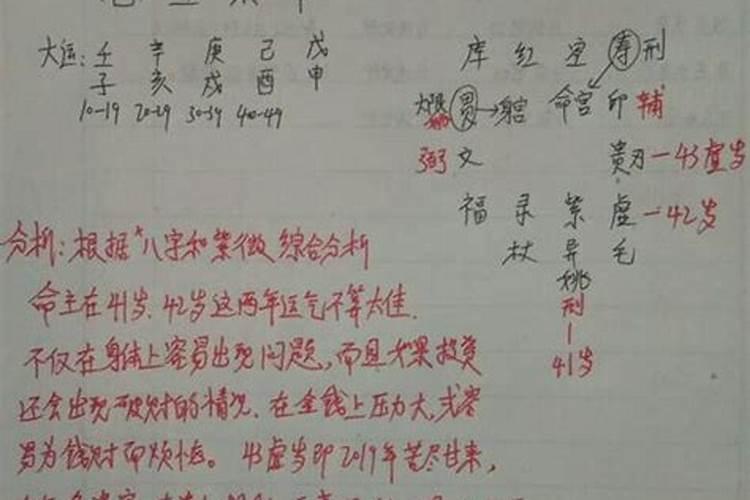 大运: 壬 辛 庚 己 戊
子 亥 戌 酉 申
10-19 20-29 30-39 40-49
库 红 空 寿 刑
大限 贯→ 命宫 印 辅
弼 文 贵 刃—43虚岁
福 录 紫 虚—42岁
杖 异 毛
姚
刑
41岁
分析: 根据八字和紫微综合分析
命主在41岁、42岁这两年运气不算太佳.
不仅在身体上容易出现问题,而且如果投资
还会出现破财的情况、在金钱上压力大,或容
易为钱财而烦恼。43虚岁即2019年苦尽甘来,